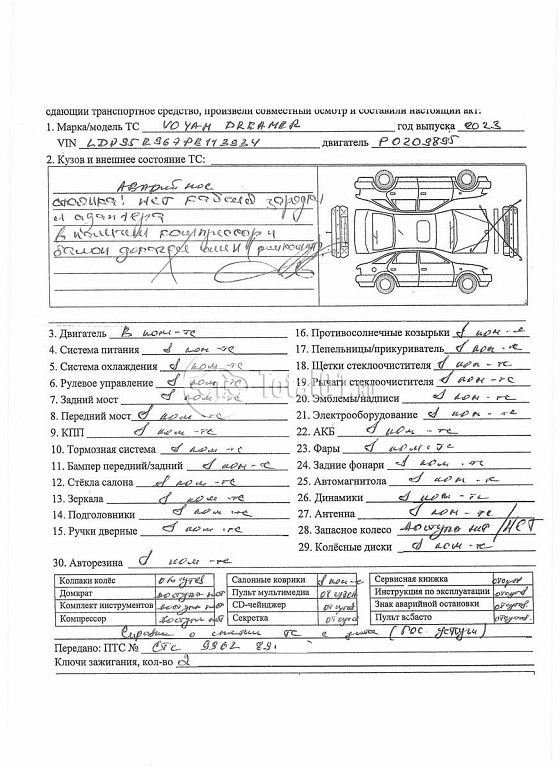 сдающий транспортное средство, произвели совместный осмотр и составили настоящий акт:
1. Марка/модель ТС VOYAH DREAMER год выпуска 2023
VIN двигатель
2. Кузов и внешнее состояние ТС:
Аварийное
нет кабеля зарядки
и адаптера
в наличии компрессор и
3. Двигатель в ком-те
4. Система питания в ком-те
5. Система охлаждения в ком-те
6. Рулевое управление в ком-те
7. Задний мост в ком-те
8. Передний мост в ком-те
9. КПП в ком-те
10. Тормозная система в ком-те
11. Бампер передний/задний в ком-те
12. Стёкла салона в ком-те
13. Зеркала в ком-те
14. Подголовники в ком-те
15. Ручки дверные в ком-те
16. Противосолнечные козырьки в ком-е
17. Пепельницы/прикуриватель в ком-е
18. Щетки стеклоочистителя в ком-те
19. Рычаги стеклоочистителя в ком-те
20. Эмблемы/надписи в ком-те
21. Электрооборудование в ком-те
22. АКБ в ком-те
23. Фары в ком-те
24. Задние фонари в ком-те
25. Автомагнитола в ком-е
26. Динамики в ком-те
27. Антенна в ком-те
28. Запасное колесо доступа нет / НЕТ
29. Колёсные диски в ком-те
30. Авторезина в ком-те
Колпаки колёс отсутств
Домкрат доступа нет
Комплект инструментов доступа нет
Компрессор доступа нет
Салонные коврики в ком-е
Пульт мультимедиа отсутст
CD-чейнджер отсутв
Секретка отсутв
Сервисная книжка отсутв
Инструкция по эксплуатации отсутв
Знак аварийной остановки отсутв
Пульт вебасто отсутв
Справка о снятии ТС с учета (Гос услуги)
Передано: ПТС № СТС 9962 891
Ключи зажигания, кол-во 2